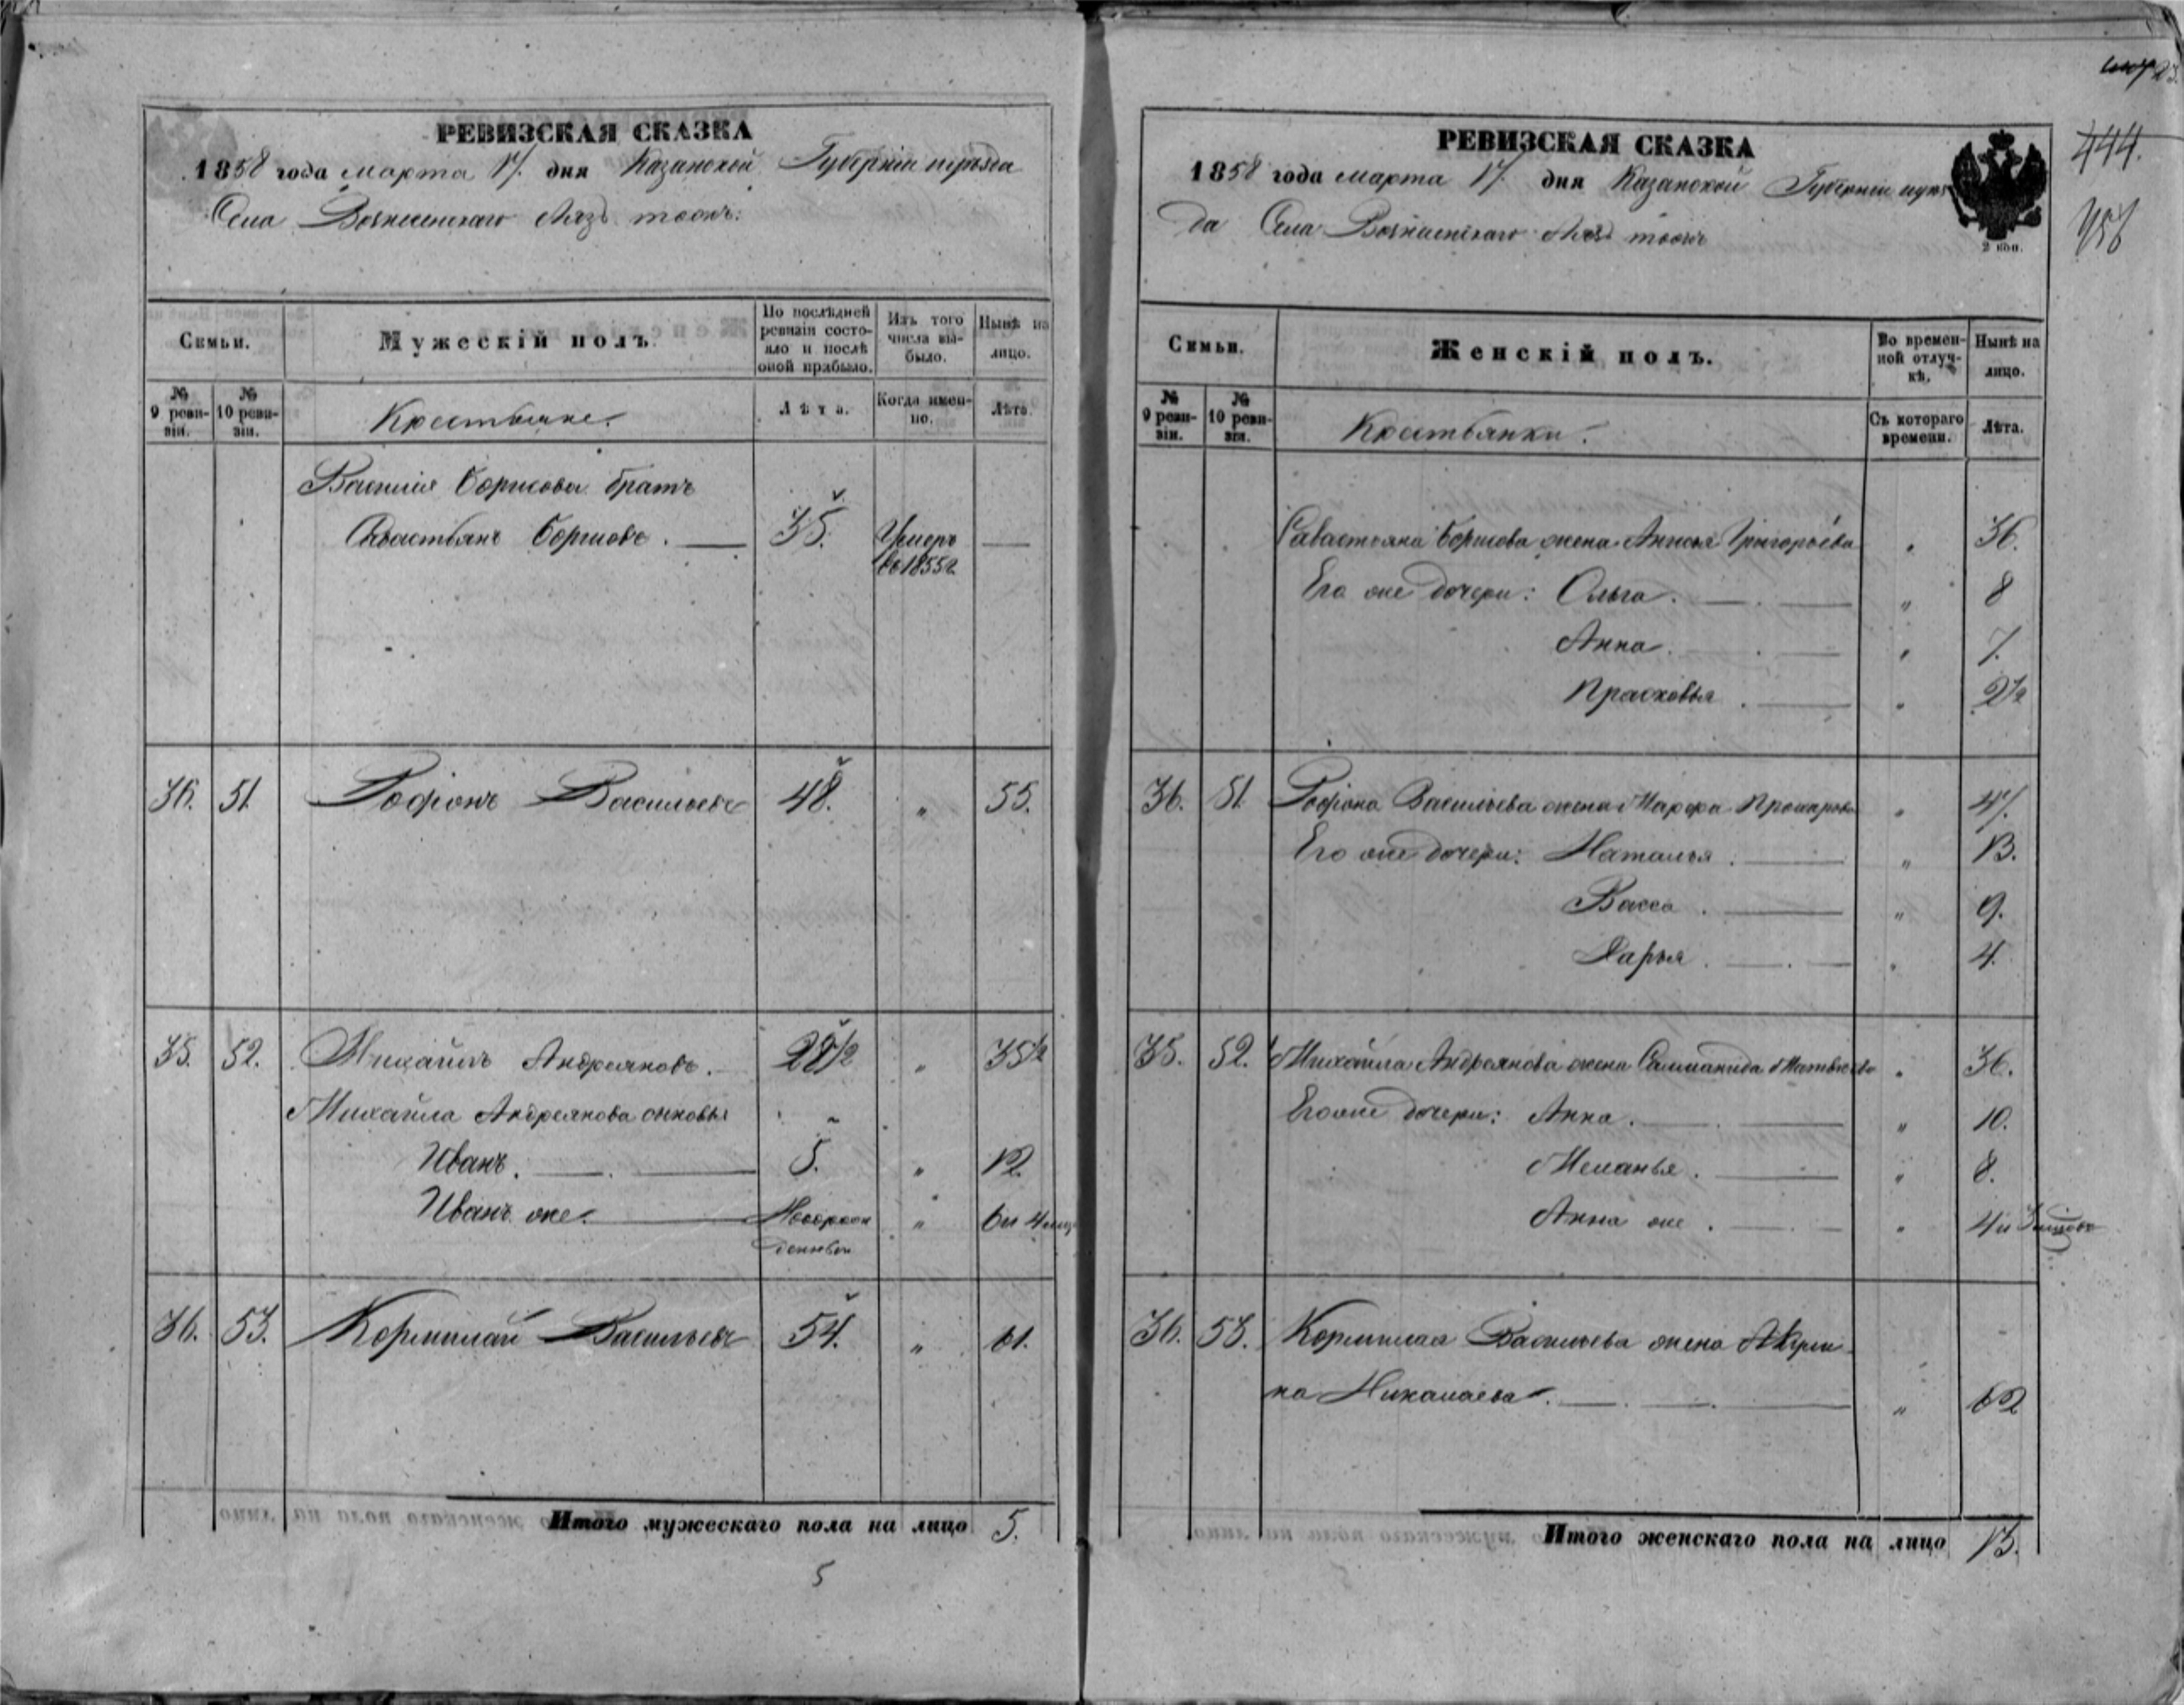 РЕВИЗСКАЯ СКАЗКА
1858 года марта 17. дня Казанской Губерніи и уѣзда
Села Вознесенскаго
Семьи.
Мужескій полъ.
По послѣдней ревизіи состояло и послѣ оной прибыло.
Изъ того числа выбыло.
Нынѣ на лицо.
№ 9 ревизіи.
№ 10 ревизіи.
Крестьяне.
Лѣта.
Когда именно.
Лѣта.
Василія Борисова братъ
Савастьянъ Борисовъ. 35. Умеръ въ 1855 г.
36. 51. Родіонъ Васильевъ 48. " 55.
35. 52. Михайлъ Андреяновъ. 28½ " 35½
Михайла Андреянова сыновья
Иванъ. 5. " 12.
Иванъ же. Новорожденный " 6 и 4 мѣс.
36. 53. Кормилай Васильевъ 54. " 61.
Итого мужескаго пола на лицо 5.
5
444.
РЕВИЗСКАЯ СКАЗКА
1858 года марта 17. дня Казанской Губерніи и уѣз
да Села Вознесенскаго
2 коп.
Семьи.
Женскій полъ.
Во временной отлучкѣ.
Нынѣ на лицо.
№ 9 ревизіи.
№ 10 ревизіи.
Крестьянки.
Съ котораго времени.
Лѣта.
Савастьяна Борисова жена Анисья Григорьева " 36.
Его же дочери: Ольга. " 8
Анна. " 7.
Прасковья. " 2½
36. 51. Родіона Васильева жена Марфа " 47.
Его же дочери: Наталья. " 13.
Васса. " 9.
Дарья. " 4.
35. 52. Михайла Андреянова жена Саламанида Матвѣева " 36.
Его же дочери: Анна. " 10.
Меланья. " 8.
Анна же. " 4 и 3 мѣсяцовъ
36. 53. Кормилая Васильева жена Акули
на Никалаева. " 62
Итого женскаго пола на лицо 13.